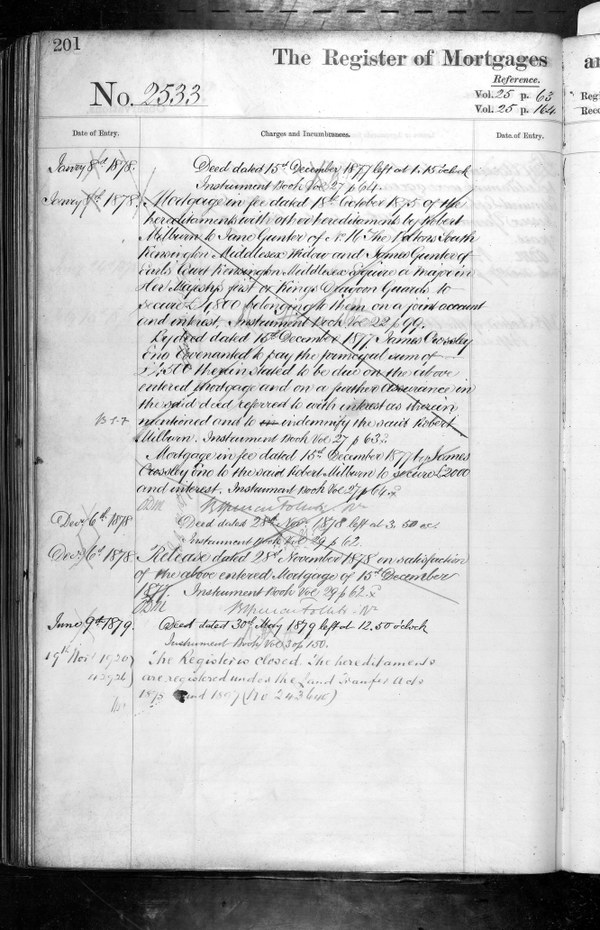 201
The Register of Mortgages
an
No. 2533
Reference.
Vol. 25 p. 63
Vol. 25 p. 164
Regi
Reco
Date of Entry.
Charges and Incumbrances.
Date of Entry.
Janry 8th 1878.
Deed dated 15th December 1877 left at 1.15 o'clock
Instrument Book Vol 27 p 64.
Janry 8th 1878.
Mortgage in fee dated 18th October 1875 of the
hereditaments with other hereditaments by Robert
Milburn to Jane Gunter of No 16 The Boltons South
Kensington Middlesex Widow and James Gunter of
Earls Court Kensington Middlesex Esquire a Major in
Her Majestys first or Kings Dragoon Guards to
secure £4,800 belonging to them on a joint account
and interest. Instrument Book Vol 22 p 99.
By deed dated 15th December 1877 James Crossley
Eno covenanted to pay the principal sum of
therein stated to be due on the above
entered Mortgage and on a further assurance in
the said deed referred to with interest as therein
mentioned and to on indemnify the said Robert
Milburn. Instrument Book Vol 27 p 63.
Mortgage in fee dated 15th December 1877 by James
Crossley Eno to the said Robert Milburn to secure £2000
and interest. Instrument Book Vol 27 p 64
Decr 6th 1878
Deed dated 28th Novr 1878 left at 3.50
Instrument Book Vol 29 p 62.
Decr 6th 1878
Release dated 28th November 1878 on satisfaction
of the above entered Mortgage of 15th December
1877. Instrument Book Vol 29 p 62
June 9th 1879.
Deed dated 30th May 1879 left at 12.50 o'clock
Instrument Book Vol 30 p 150.
19th Novr 1920
The Register is closed. The hereditaments
are registered under the Land Transfer Acts
1875 and 1897 (No